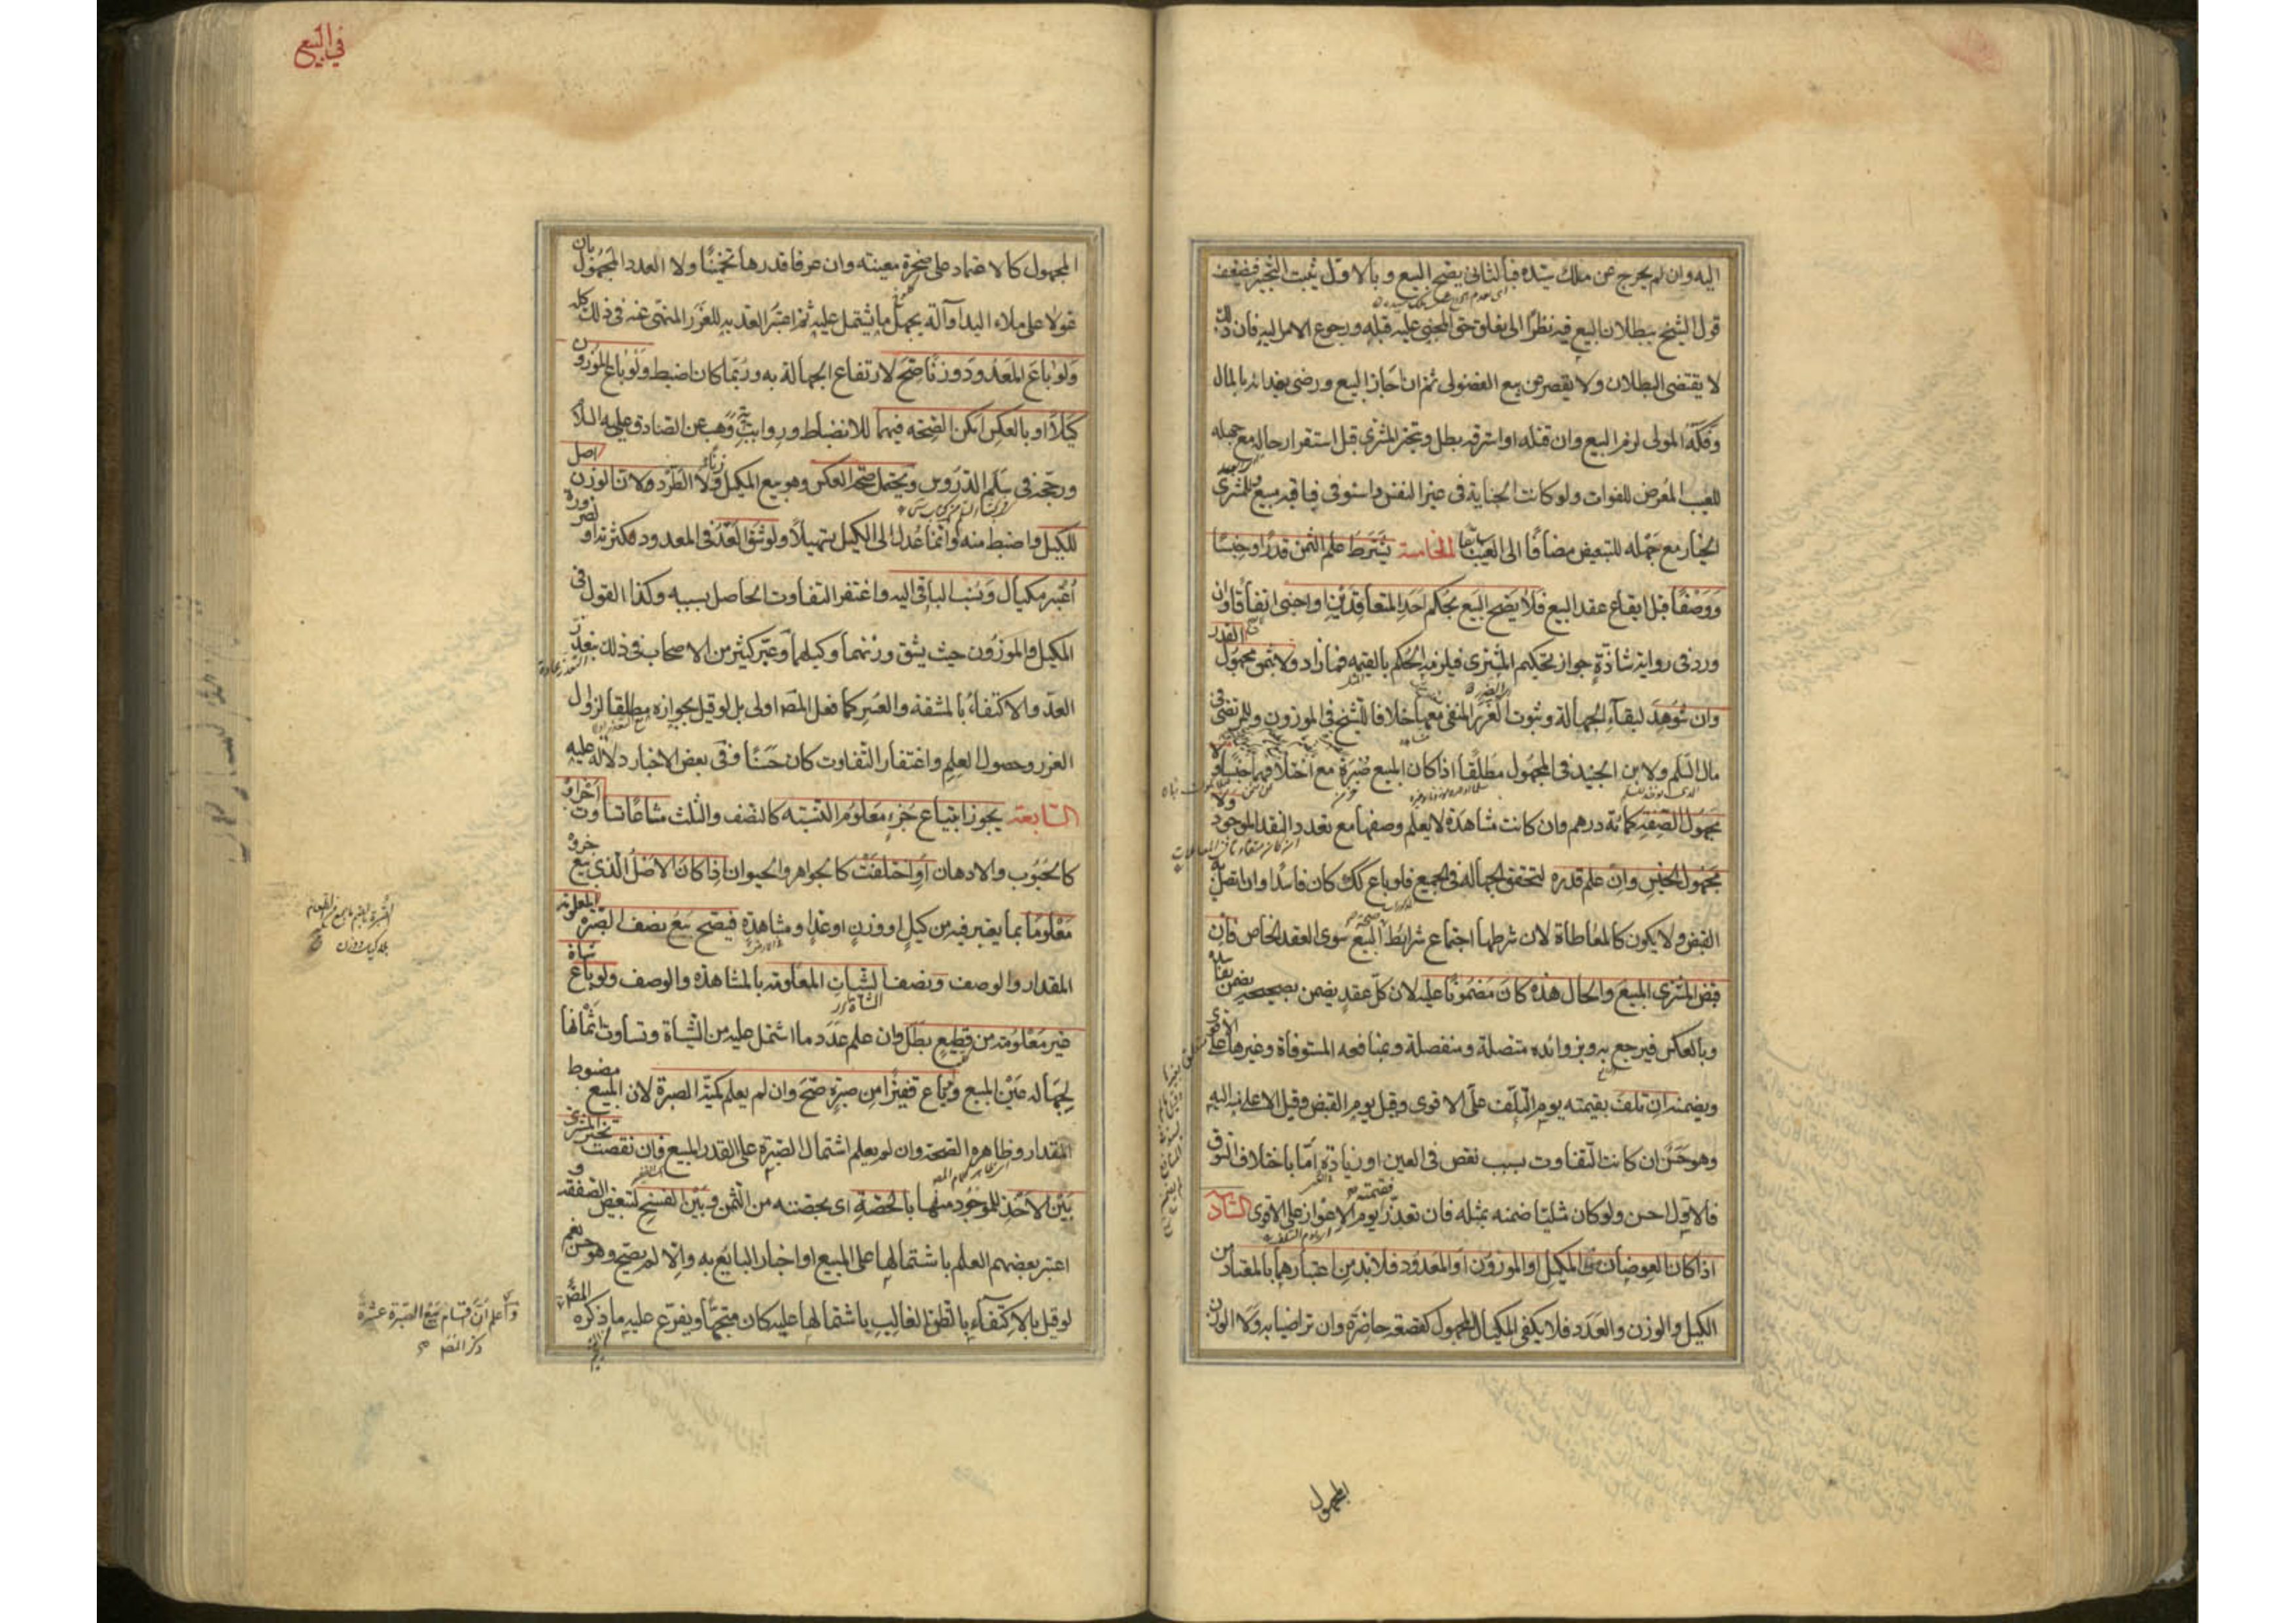 اليه وان لم يخرج عن ملك سيده فبالثاني يصح البيع وبالاول يثبت التخيير فيضعف
قول الشيخ ببطلان البيع فيه نظرا الى تعلق حق المجنى عليه قبله ورجوع الامر اليه فان ذلك
لا يقتضى البطلان ولا يقصر عن بيع الفضولى ثم ان اجاز البيع ورضى بفدائه بالمال
وفكه المولى لزم البيع وان قتله او استرقه بطل ويتخير المشترى قبل استقرار حاله مع جهله
للعيب المعرض للفوات ولو كانت الجناية فى غير النفس واستوفى فباقيه مبيع وللمشترى
الخيار مع جهله للتبعيض مضافا الى العيب سابقا الخامسة يشترط علم الثمن قدرا وجنسا
ووصفا قبل ايقاع عقد البيع فلا يصح البيع بحكم احد المتعاقدين او اجنبى اتفاقا وان
ورد فى رواية شاذة جواز تحكيم المشترى فيلزمه الحكم بالقيمة فما زاد ولا بثمن مجهول القدر
وان شوهد لبقاء الجهالة وثبوت الغرر المنفى معها خلافا للشيخ فى الموزون وللمرتضى فى
مال السلم ولابن الجنيد فى المجهول مطلقا اذا كان المبيع صبرة مع اختلافهما جنسا ولا
مجهول الصفة كمائة درهم وان كانت مشاهدة لا يعلم وصفها مع تعدد النقد الموجود ولا
مجهول الجنس وان علم قدره لتحقق الجهالة فى الجميع فلو باع كذلك كان فاسدا وان اتصل به
القبض ولا يكون كالمعاطاة لان شرطها اجتماع شرايط صحة البيع سوى العقد الخاص فان
قبض المشترى المبيع والحال هذه كان مضمونا عليه لان كل عقد يضمن بصحيحه يضمن بفاسده
وبالعكس فيرجع به وبزوائده متصلة ومنفصلة وبمنافعه المستوفاة وغيرها على الاقوى
ويضمنه ان تلف بقيمته يوم التلف على الاقوى وقيل يوم القبض وقيل الاعلى منه اليه
وهو حسن ان كانت التفاوت بسبب نقص فى العين او زيادة اما باختلاف السوق
فالاول احسن ولو كان مثليا ضمنه بمثله فان تعذر فقيمته يوم الاعواز على الاقوى السادسة
اذا كان العوضان من المكيل او الموزون او المعدود فلا بد من اعتبارهما بالمعتاد من
الكيل والوزن والعدد فلا يكفى المكيال المجهول كقصعة حاضرة وان تراضيا به ولا الوزن
المجهول
فى البيع
المجهول كالاعتماد على صخرة معينة وان عرفا قدرها تخمينا ولا العدد المجهول بان
عولا على ملاء اليد او آلة يجهل ما يشتمل عليه ثم اعتبر العد به للغرر المنهى عنه فى ذلك كله
ولو باع المعدود وزنا صح لارتفاع الجهالة به وربما كان اضبط ولو باع الموزون
كيلا او بالعكس امكن الصحة فيهما للانضباط ورواية وهب عن الصادق عليه السلام
ورجحه فى سلم الدروس ويحتمل صحة العكس وهو بيع المكيل وزنا لا الطرد لان الوزن اصل
للكيل واضبط منه وانما عدل الى الكيل تسهيلا ولو شق العد فى المعدود لكثرته او لضرورة
اعتبر مكيال ونسب الباقى اليه واغتفر التفاوت الحاصل بسببه وكذا القول فى
المكيل والموزون حيث يشق وزنهما وكيلهما وعبر كثير من الاصحاب فى ذلك بتعذر
العد والاكتفاء بالمشقة والعسر كما فعل المص اولى بل لو قيل بجوازه مطلقا لزوال
الغرر وحصول العلم واغتفار التفاوت كان حسنا وفى بعض الاخبار دلالة عليه
السابعة يجوز ابتياع جزء معلوم النسبة كالنصف والثلث مشاعا تساوت اجزاؤه
كالحبوب والادهان او اختلفت كالجواهر والحيوان اذا كان الاصل الذى بيع جزؤه
معلوما بما يعتبر فيه من كيل او وزن او عد او مشاهدة فيصح بيع نصف الصبرة المعلومة
المقدار والوصف ونصف الشياه المعلومة بالمشاهدة والوصف ولو باع شاة
غير معلومة من قطيع بطل وان علم عدد ما اشتمل عليه من الشياة وتساوت اثمانها
لجهالة عين المبيع ولو باع قفيزا من صبرة صح وان لم يعلم كمية الصبرة لان المبيع مضبوط
المقدار وظاهره الصحة وان لم يعلم اشتمال الصبرة على القدر المبيع فان نقصت تخير المشترى
بين الاخذ للموجود منها بالحصة اى بحصته من الثمن وبين الفسخ لتبعض الصفقة و
اعتبر بعضهم العلم باشتمالها على المبيع او اخبار البايع به والا لم يصح وهو حسن نعم
لو قيل بالاكتفاء بالظن الغالب باشتمالها عليه كان متجها ويفرع عليه ما ذكره المص
واعلم ان اقسام بيع الصبرة عشرة
ذكر المص